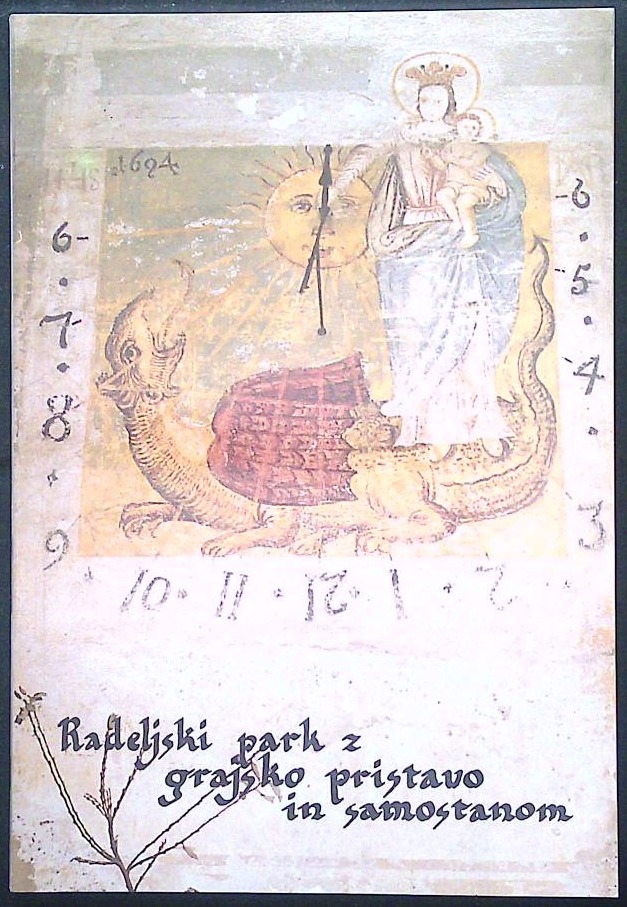 1694
6-
-6
7
5
8
4
9
3
10 · 11 · 12 · 1 · 2
Radeljski park z
grajsko pristavo
in samostanom